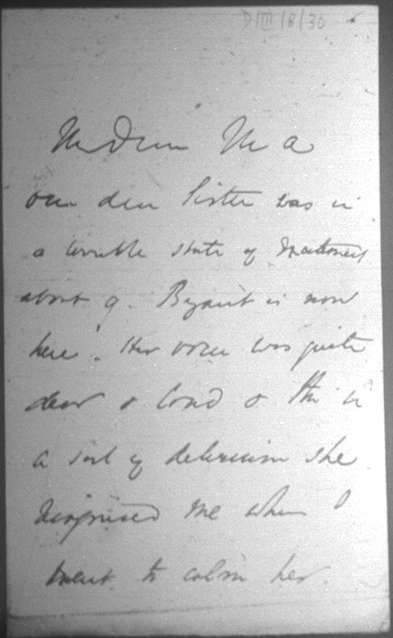 D/III/8/30
My Dear M a
our dear Sister was in
a terrible state of excitement
about 9. Bryant is now
here. Her voice was quite
clear & loud & this is
a sort of delirium she
recognised me when I
went to calm her.